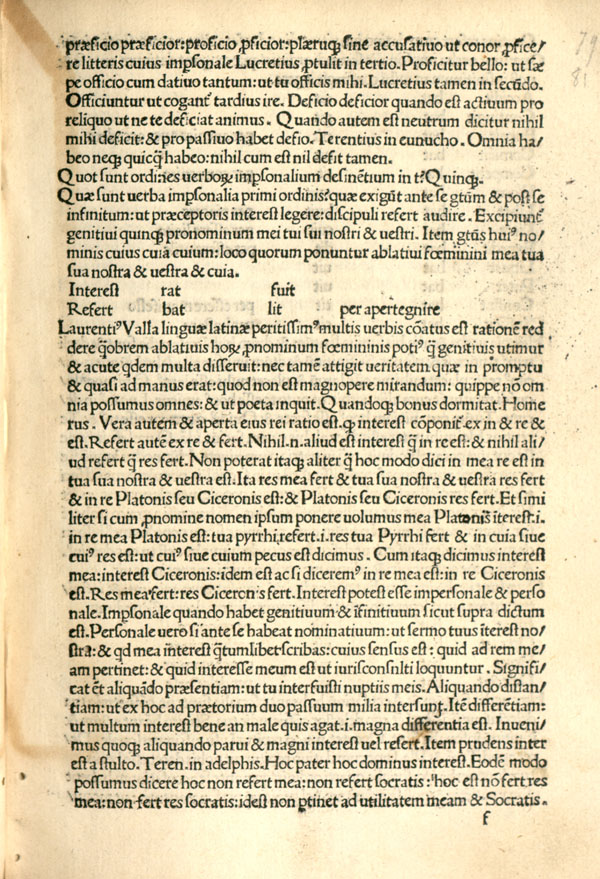 præficio præficior:proficio ꝓficior:plæruqꝫ sine accusatiuo ut conor ꝓfice/
re litteris cuius impsonale Lucretius ꝓtulit in tertio. Proficitur bello: ut sæ
pe officio cum datiuo tantum: ut tu officis mihi. Lucretius tamen in secūdo.
Officiuntur ut cogant̃ tardius ire. Deficio deficior quando est actiuum pro
reliquo ut ne te deficiat animus. Quando autem est neutrum dicitur nihil
mihi deficit: & pro passiuo habet defio. Terentius in eunucho. Omnia ha/
beo neqꝫ quicq̃ habeo: nihil cum est nil defit tamen.
Quot sunt ordines uerboꝝ impsonalium desinētium in t? Quinqꝫ.
Quæ sunt uerba impsonalia primi ordinis? quæ exigūt ante se gt̃m & post se
infinitum: ut præceptoris interest legere: discipuli refert audire. Excipiunt̃
genitiui quinqꝫ pronominum mei tui sui nostri & uestri. Item gt̃us huiꝰ no/
minis cuius cuia cuium: loco quorum ponuntur ablatiui fœminini mea tua
sua nostra & uestra & cuia.
Interest rat fuit
Refert bat lit per apertegnire
Laurentiꝰ Valla linguæ latinæ peritissimꝰ multis uerbis cōatus est rationē red
dere q̃obrem ablatiuis hoꝝ ꝓnominum fœmininis potiꝰ q̃ genitiuis utimur
& acute q̃dem multa disseruit: nec tamē attigit ueritatem quæ in promptu
& quasi ad manus erat: quod non est magnopere mirandum: quippe nō om
nia possumus omnes: & ut poeta inquit. Quandoqꝫ bonus dormitat. Home
rus. Vera autem & aperta eius rei ratio est. ꝙ interest cōponit̃ ex in & re &
est. Refert autē ex re & fert. Nihil .n. aliud est interest q̃ in re est: & nihil ali/
ud refert q̃ res fert. Non poterat itaqꝫ aliter q̃ hoc modo dici in mea re est in
tua sua nostra & uestra est. Ita res mea fert & tua sua nostra & uestra res fert
& in re Platonis seu Ciceronis est: & Platonis seu Ciceronis res fert. Et simi
liter si cum ꝓnomine nomen ipsum ponere uolumus mea Platonis īterest .i.
in re mea Platonis est: tua pyrrhi refert .i. res tua Pyrrhi fert & in cuia siue
cuiꝰ res est: ut cuiꝰ siue cuium pecus est dicimus. Cum itaqꝫ dicimus interest
mea: interest Ciceronis: idem est ac si diceremꝰ in re mea est: in re Ciceronis
est. Res mea fert: res Ciceronis fert. Interest potest esse impersonale & perso
nale. Impsonale quando habet genitiuum & īfinitiuum sicut supra dictum
est. Personale uero si ante se habeat nominatiuum: ut sermo tuus īterest no/
stra: & qd mea īterest q̃tumlibet scribas: cuius sensus est: quid ad rem me/
am pertinet: & quid interesse meum est ut iurisconsulti loquuntur. Signifi/
cat ēt aliquādo præsentiam: ut tu interfuisti nuptiis meis. Aliquando distan/
tiam: ut ex hoc ad prætorium duo passuum milia intersunt. Itē differētiam:
ut multum interest bene an male quis agat .i. magna differentia est. Inueni/
mus quoqꝫ aliquando parui & magni interest uel refert. Item prudens inter
est a stulto. Teren. in adelphis. Hoc pater hoc dominus interest. Eodē modo
possumus dicere hoc non refert mea: non refert socratis: hoc est nō fert res
mea: non fert res socratis: idest non ꝑtinet ad utilitatem meam & Socratis.
f
79
81